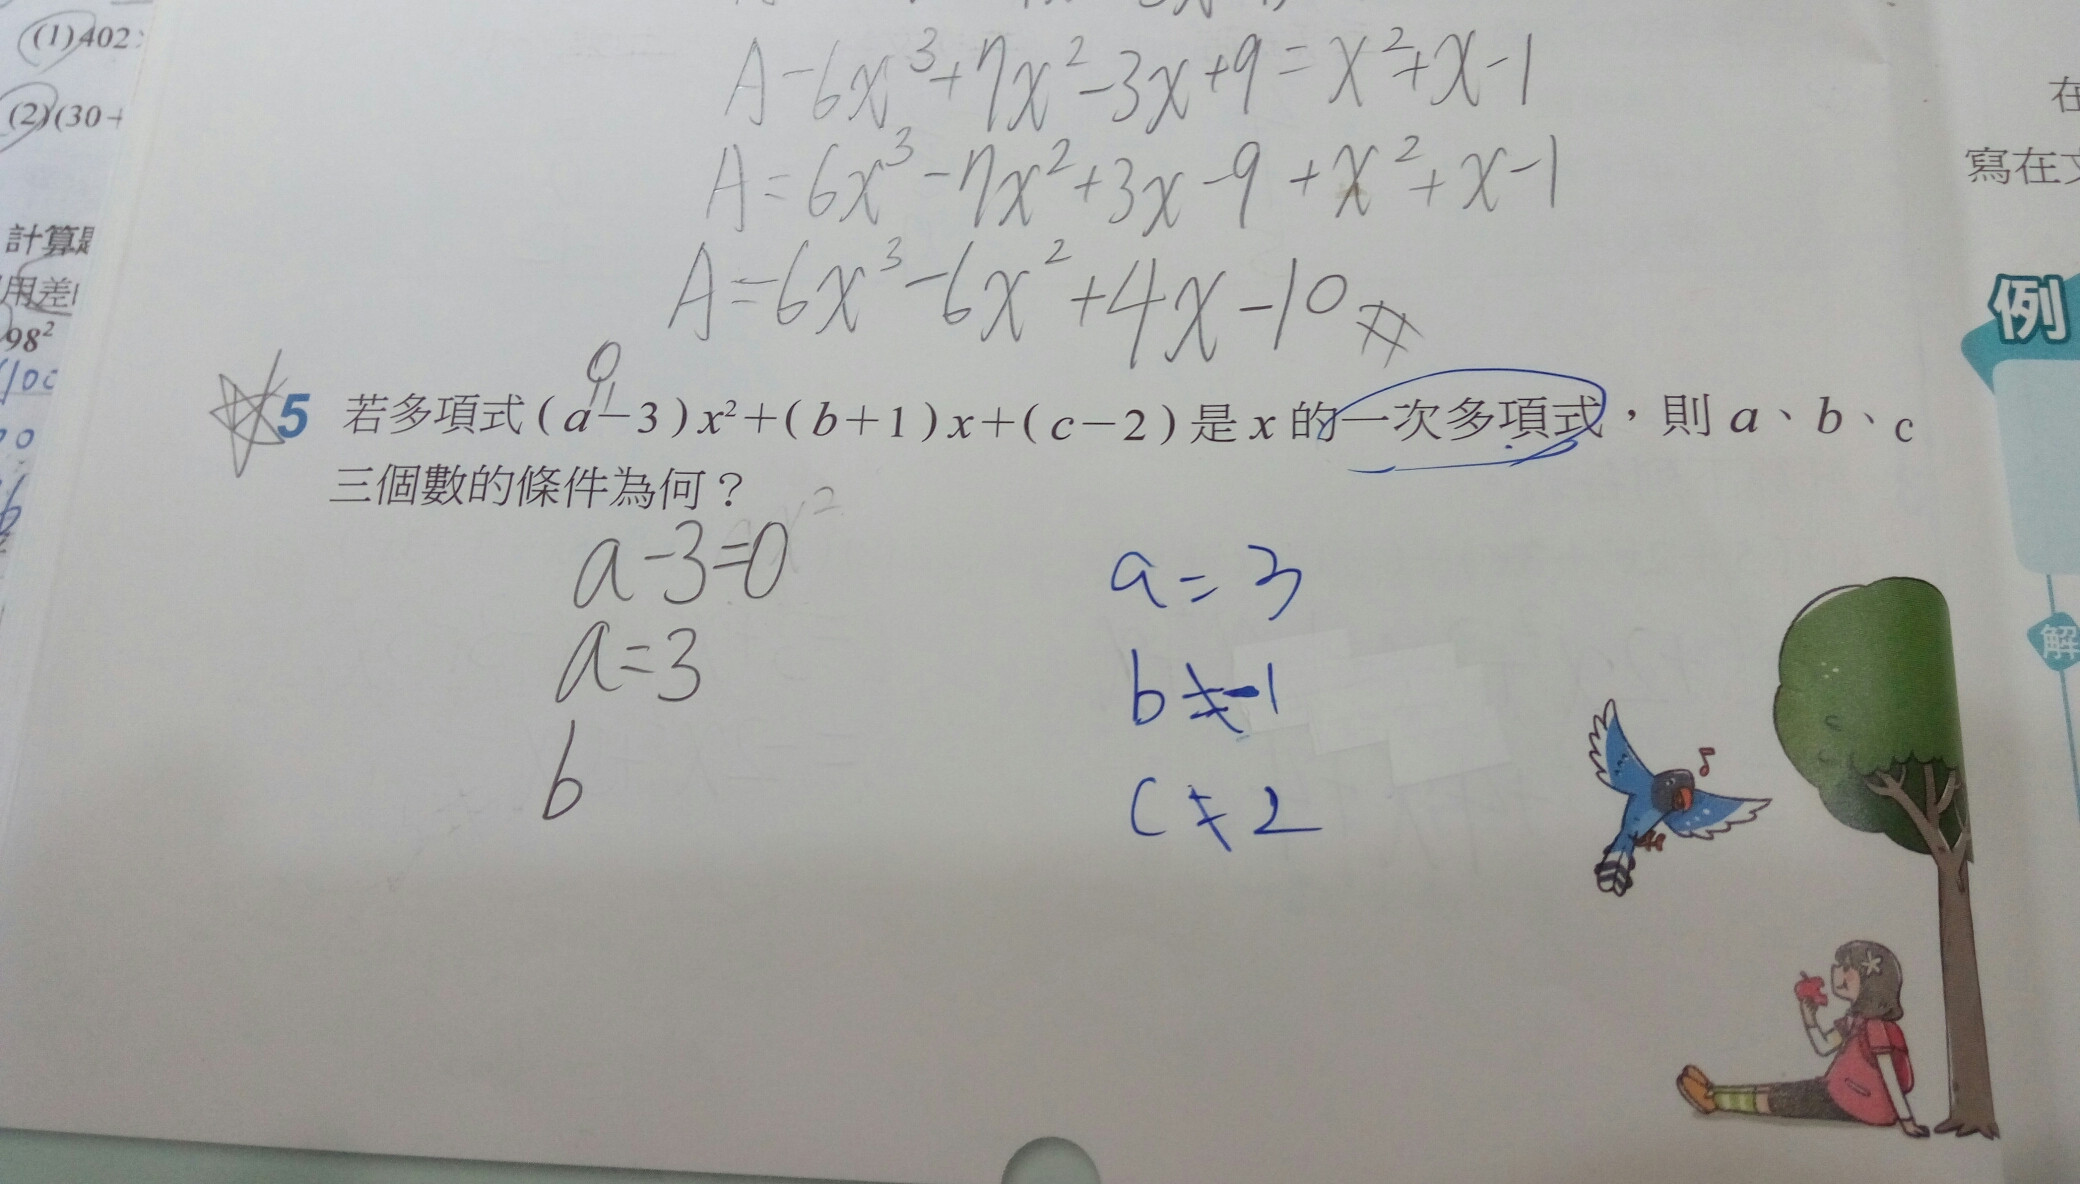 (1)402
(2)(30+
計算題
用差
98²
A-6x³+7x²-3x+9=x²+x-1
A=6x³-7x²+3x-9+x²+x-1
A=6x³-6x²+4x-10
0
5 若多項式(a-3)x²+(b+1)x+(c-2)是x的一次多項式，則a、b、c
三個數的條件為何？
a-3=0
a=3
b
a=3
b≠-1
c≠2
在
寫在文
例
解